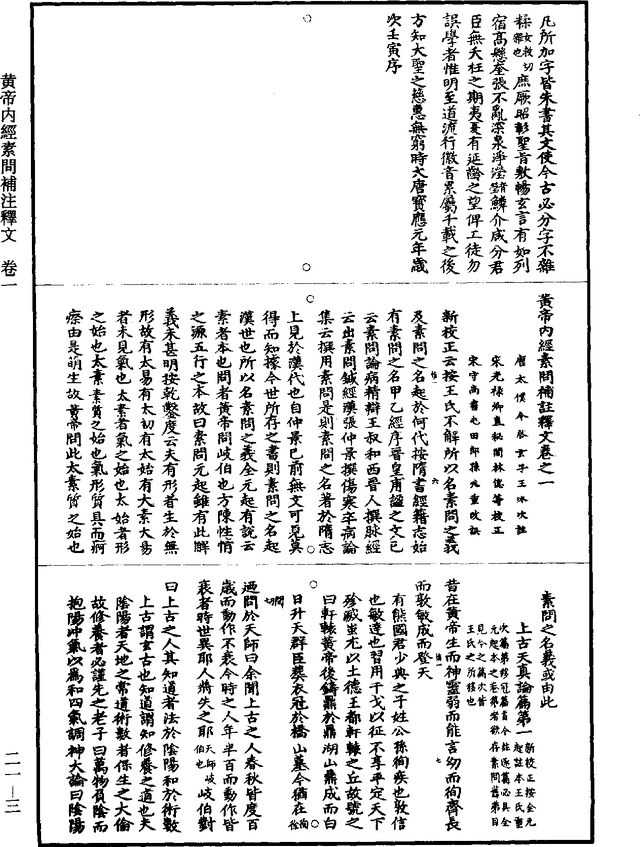 黄帝内經素問補注釋文　卷一
二一—三
凡所加字皆朱書其文使今古必分字不雜
糅女救切雜也庶厥昭彰聖旨敷暢玄言有如列
宿高懸奎張不亂深泉淨瀅鱗介咸分君
臣無夭枉之期夷夏有延齡之望俾工徒勿
誤學者惟明至道流行徽音累屬千載之後
方知大聖之慈惠無窮時大唐寶應元年歲
次壬寅序
黄帝内經素問補註釋文卷之一
唐太僕令啓玄子王冰次註
宋光禄卿直祕閣林億等校正
宋守尚書屯田郎孫兆重改誤
新校正云按王氏不解所以名素問之義
及素問之名起於何代按隋書經籍志始
有素問之名甲乙經序晉皇甫謐之文已
云素問論病精辯王叔和西晉人撰脉經
云出素問鍼經漢張仲景撰傷寒卒病論
集云撰用素問是則素問之名著於隋志
上見於漢代也自仲景已前無文可見莫
得而知據今世所存之書則素問之名起
漢世也所以名素問之義全元起有說云
素者本也問者黄帝問岐伯也方陳性情
之源五行之本故曰素問元起雖有此解
義未甚明按乾鑿度云夫有形者生於無
形故有太易有太初有太始有太素太易
者未見氣也太初者氣之始也太始者形
之始也太素者質之始也氣形質具而疴
瘵由是萌生故黄帝問此太素質之始也
素問之名義或由此
上古天真論篇第一新校正按全元起註本在第九卷王氏重次篇第移冠篇首今註逐篇必具全元起本之卷第者欲存素問舊第目見今之篇次皆王氏之所移也
昔在黄帝生而神靈弱而能言幼而徇齊長
而敦敏成而登天
有熊國君少典之子姓公孫徇疾也敦信
也敏達也習用干戈以征不享平定天下
殄滅蚩尤以土德王都軒轅之丘故號之
曰軒轅黄帝後鑄鼎於鼎湖山鼎成而白
日升天群臣葬衣冠於橋山墓今猶在徇徐閏切
迺問於天師曰余聞上古之人春秋皆度百
歲而動作不衰今時之人年半百而動作皆
衰者時世異耶人將失之耶天師岐伯也岐伯對
曰上古之人其知道者法於陰陽和於術數
上古謂玄古也知道謂知修養之道也夫
陰陽者天地之常道術數者保生之大倫
故修養者必謹先之老子曰萬物負陰而
抱陽冲氣以爲和四氣調神大論曰陰陽